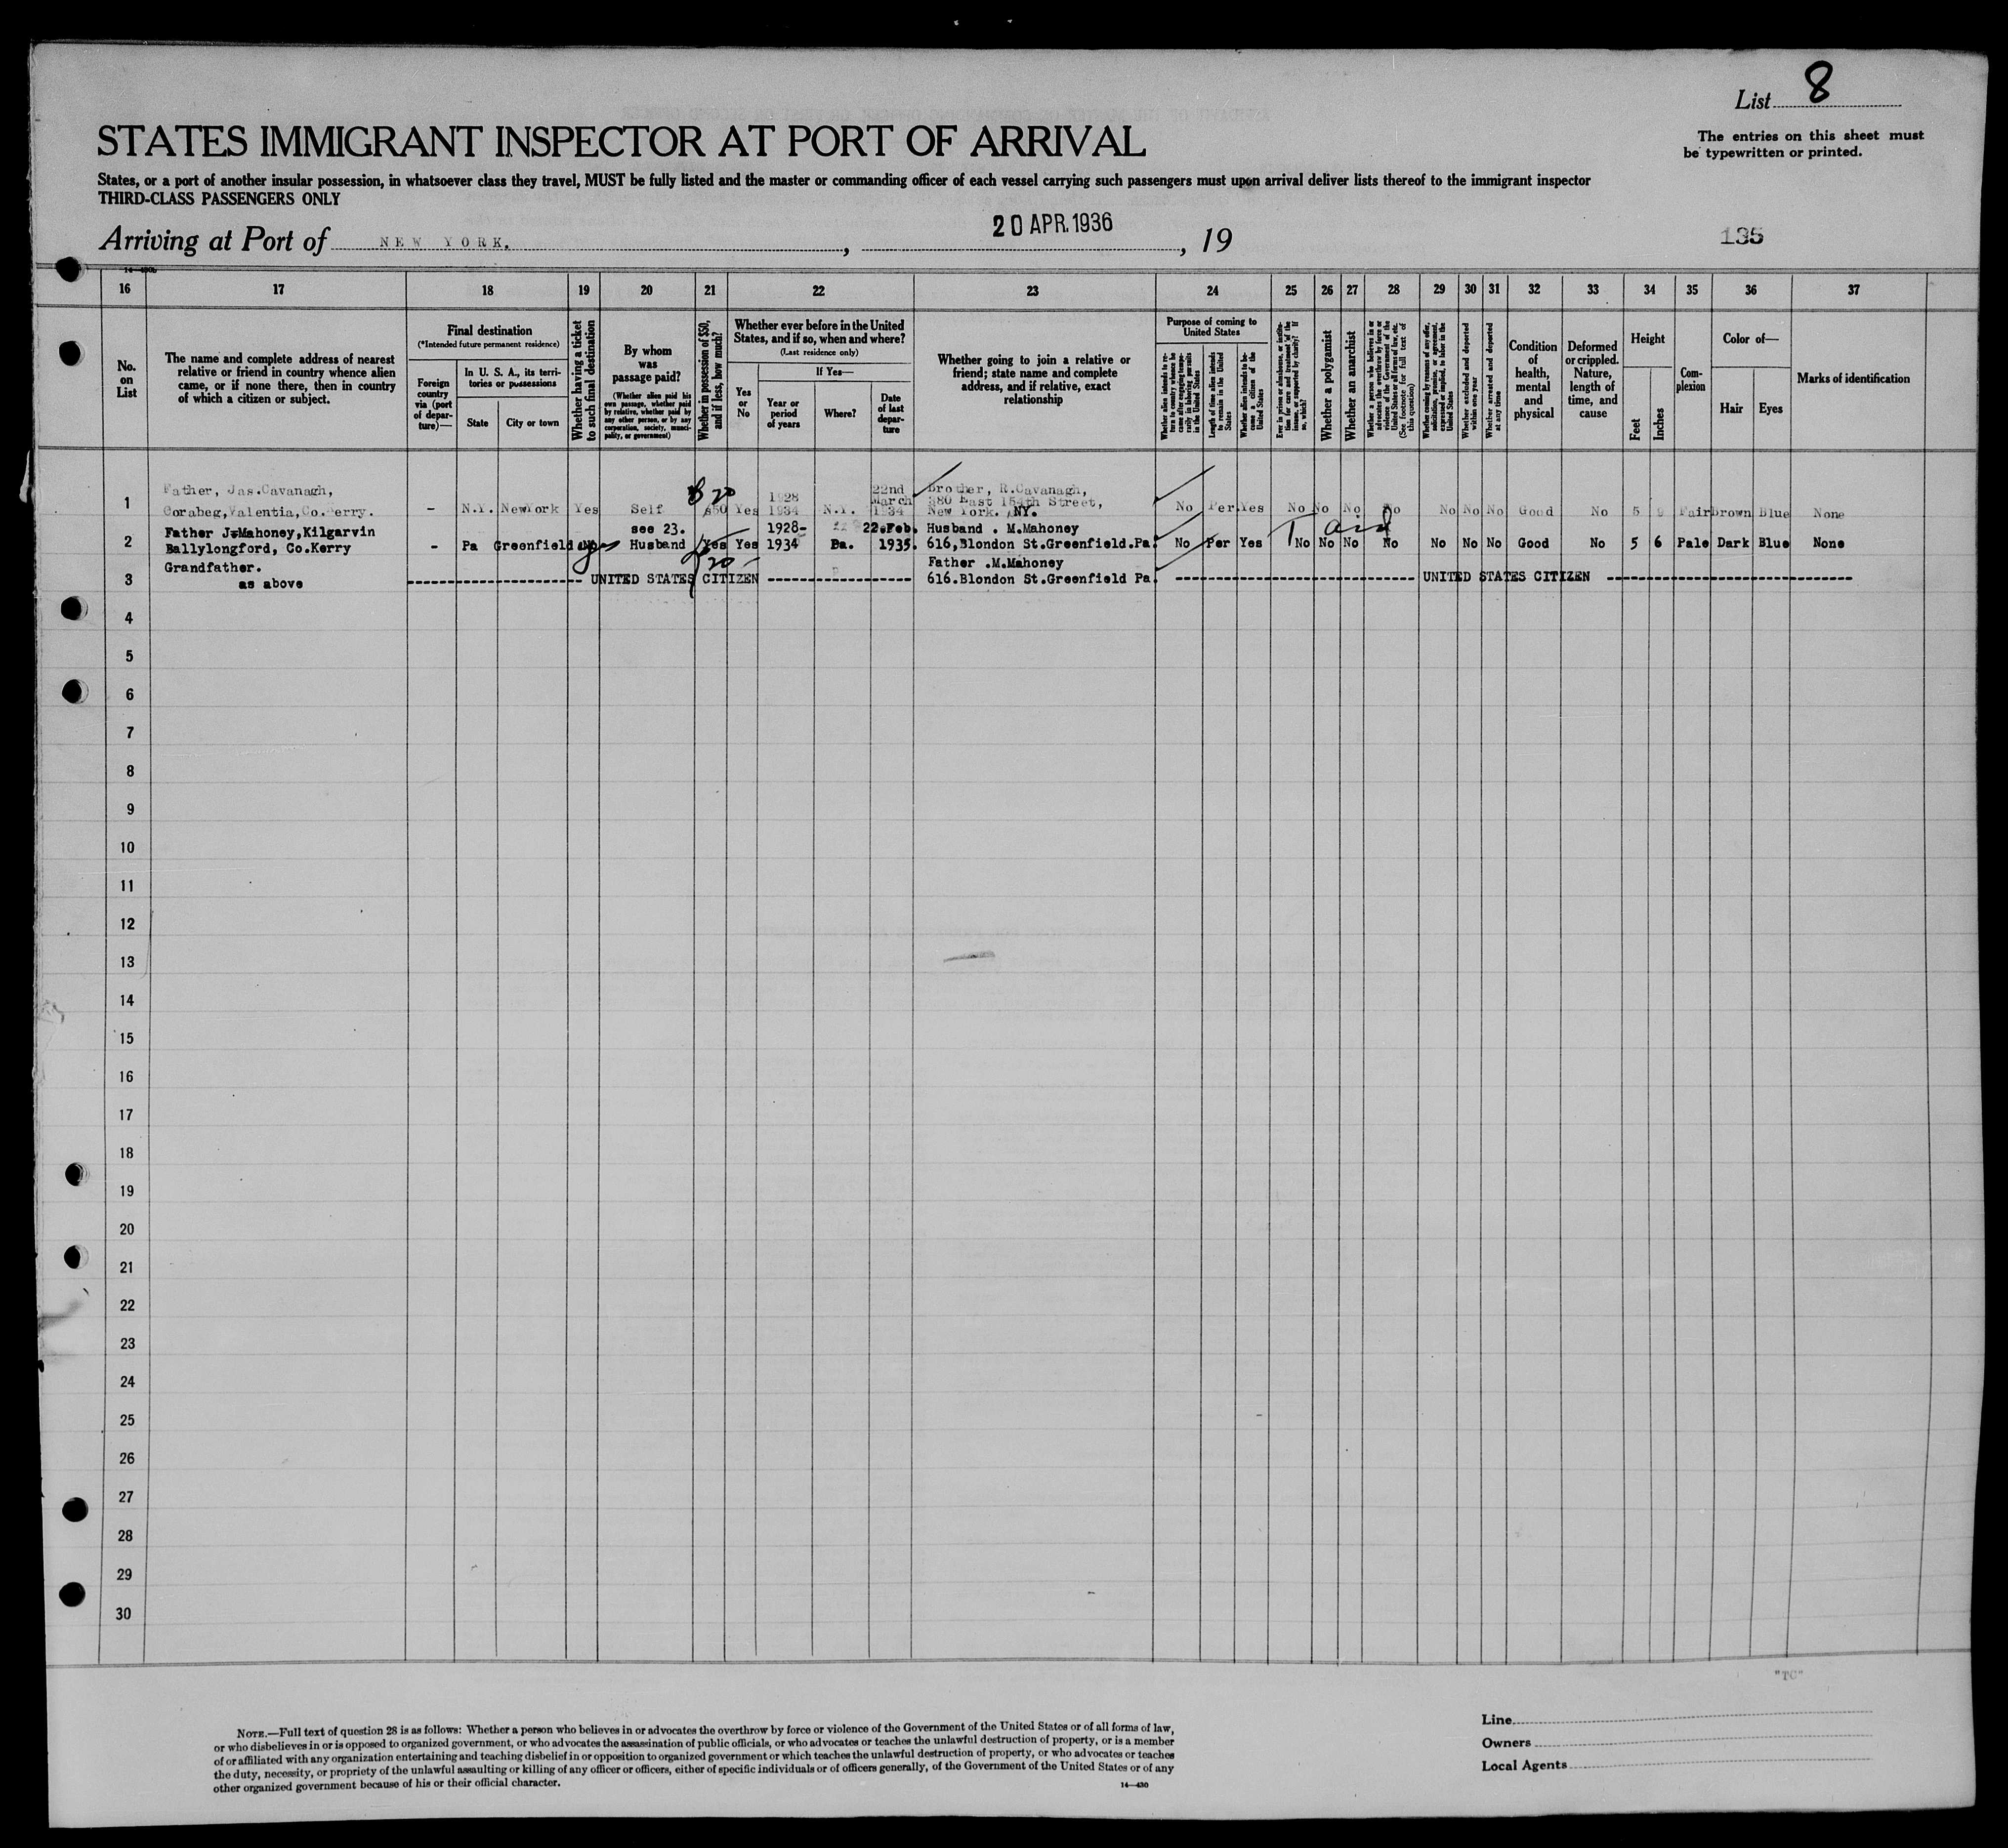 List 8
The entries on this sheet must
be typewritten or printed.
STATES IMMIGRANT INSPECTOR AT PORT OF ARRIVAL
States, or a port of another insular possession, in whatsoever class they travel, MUST be fully listed and the master or commanding officer of each vessel carrying such passengers must upon arrival deliver lists thereof to the immigrant inspector
THIRD-CLASS PASSENGERS ONLY
Arriving at Port of NEW YORK. , 20 APR. 1936 , 19
135
16 17 18 19 20 21 22 23 24 25 26 27 28 29 30 31 32 33 34 35 36 37
No. on List
The name and complete address of nearest
relative or friend in country whence alien
came, or if none there, then in country
of which a citizen or subject.
Final destination
(*Intended future permanent residence)
Foreign country via (port of departure)—
In U. S. A., its territories or possessions
State
City or town
Whether having a ticket to such final destination
By whom was passage paid?
(Whether alien paid his own passage, whether paid by relative, whether paid by any other person, or by any corporation, society, municipality, or government)
Whether in possession of $50, and if less, how much?
Whether ever before in the United
States, and if so, when and where?
(Last residence only)
Yes or No
If Yes—
Year or period of years
Where?
Date of last departure
Whether going to join a relative or
friend; state name and complete
address, and if relative, exact
relationship
Purpose of coming to United States
Whether alien intends to return to country whence he came after engaging temporarily in laboring pursuits in the United States
Length of time alien intends to remain in the United States
Whether alien intends to become a citizen of the United States
Ever in prison or almshouse, or institution for care and treatment of the insane, or supported by charity? If so, which?
Whether a polygamist
Whether an anarchist
Whether a person who believes in or advocates the overthrow by force or violence of the Government of the United States or all forms of law, etc. (See footnote for full text of this question)
Whether coming by reason of any offer, solicitation, promise, or agreement, expressed or implied, to labor in the United States
Whether excluded and deported within one year
Whether arrested and deported at any time
Condition of health, mental and physical
Deformed or crippled. Nature, length of time, and cause
Height
Feet
Inches
Complexion
Color of—
Hair
Eyes
Marks of identification
1 Father, Jas.Cavanagh,
Corabeg,Valentia,Co.Kerry. - N.Y. NewYork Yes Self $50 Yes 1928 1934 N.Y. 22nd March 1934 Brother, R.Cavanagh,
380 East 154th Street,
New York. NY. No Per. Yes No No No. No No No No Good No 5 9 Fair Brown Blue None
$ 20
2 Father J.Mahoney,Kilgarvin
Ballylongford, Co.Kerry - Pa Greenfield No see 23. Husband Yes Yes 1928- 1934 Pa. 22.Feb. 1935. Husband . M.Mahoney
616,Blondon St.Greenfield.Pa. No Per Yes No No No No No No No Good No 5 6 Pale Dark Blue None
20 -
3 Grandfather.
as above UNITED STATES CITIZEN Father .M.Mahoney
616.Blondon St.Greenfield Pa. UNITED STATES CITIZEN
4
5
6
7
8
9
10
11
12
13
14
15
16
17
18
19
20
21
22
23
24
25
26
27
28
29
30
"TC"
NOTE.—Full text of question 28 is as follows: Whether a person who believes in or advocates the overthrow by force or violence of the Government of the United States or of all forms of law,
or who disbelieves in or is opposed to organized government, or who advocates the assassination of public officials, or who advocates or teaches the unlawful destruction of property, or is a member
of or affiliated with any organization entertaining and teaching disbelief in or opposition to organized government or which teaches the unlawful destruction of property, or who advocates or teaches
the duty, necessity, or propriety of the unlawful assaulting or killing of any officer or officers, either of specific individuals or of officers generally, of the Government of the United States or of any
other organized government because of his or their official character.
14—430
Line
Owners
Local Agents